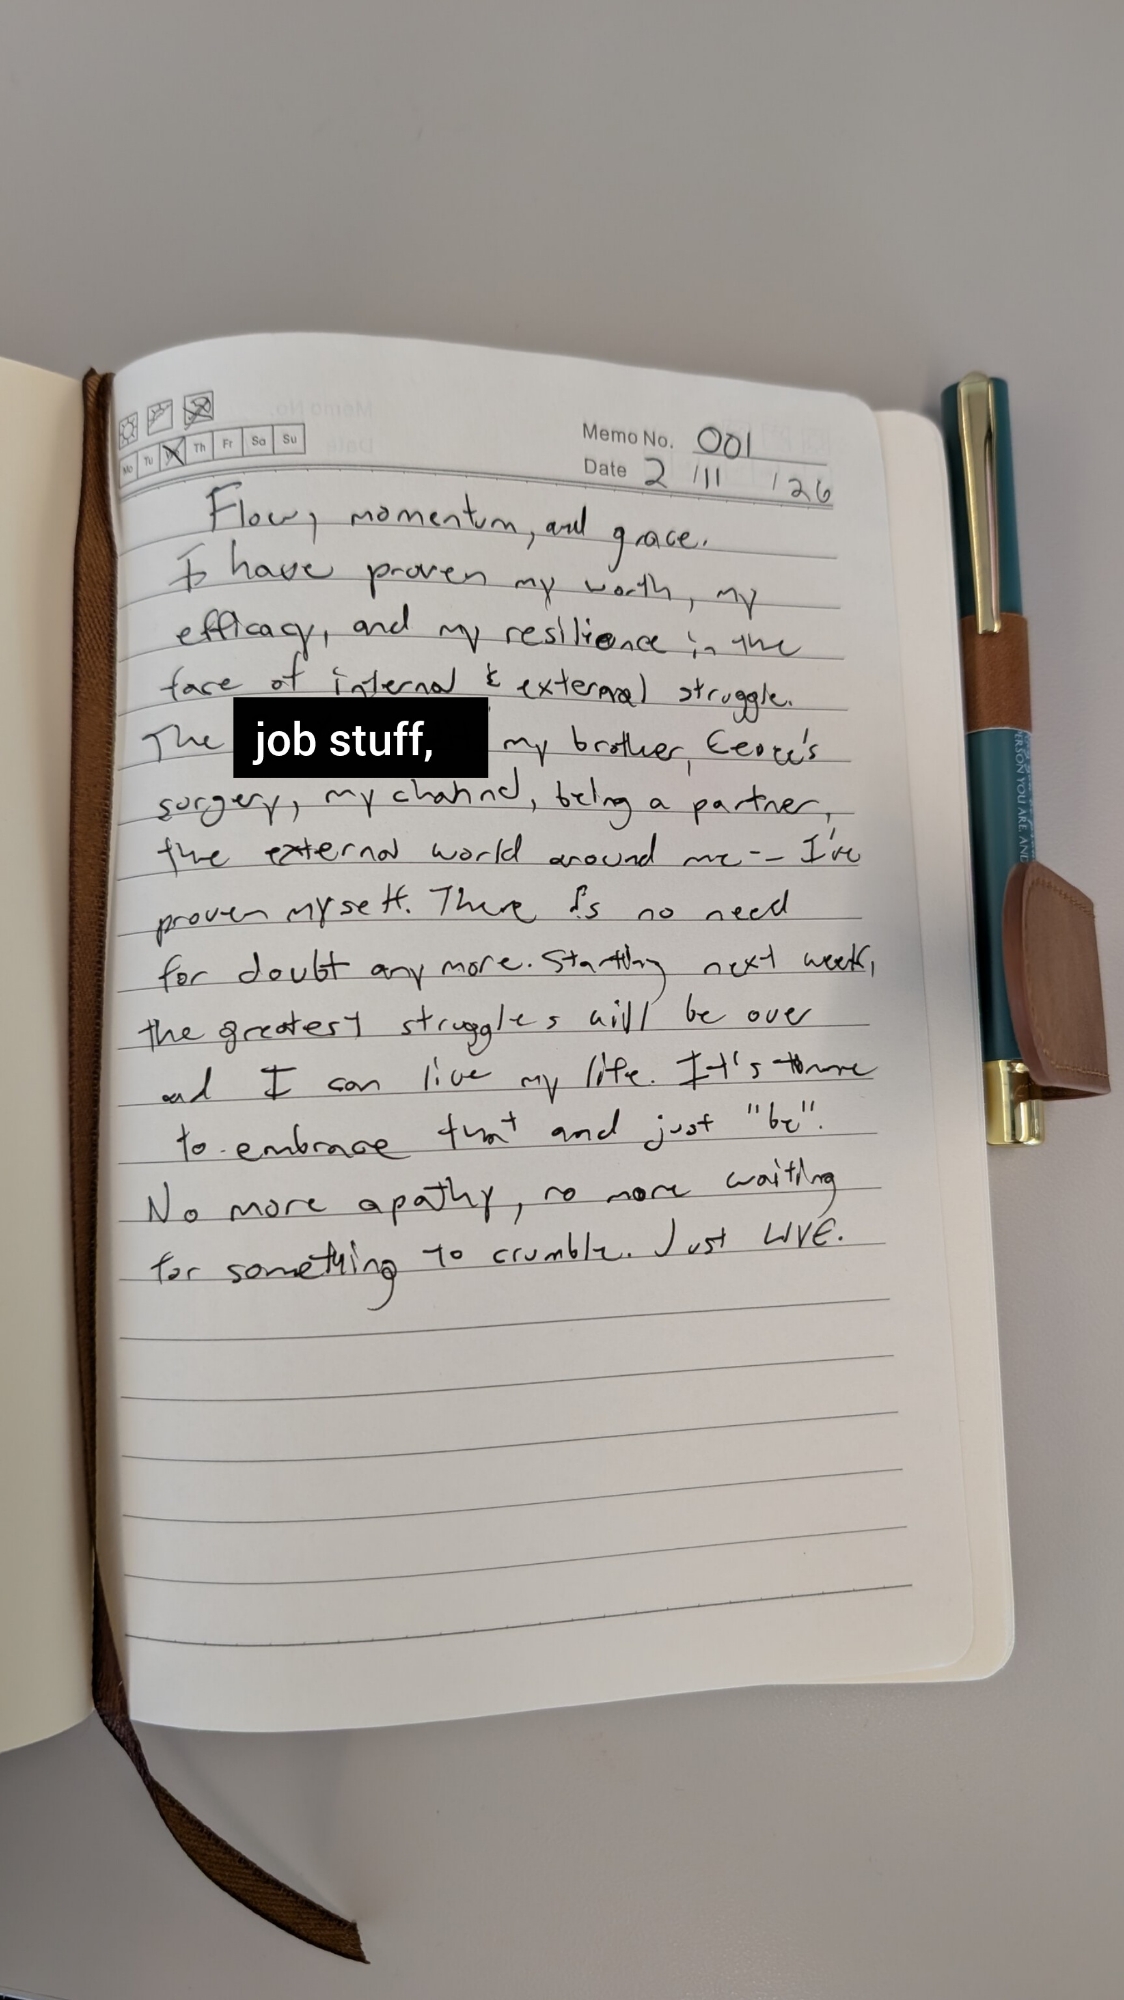 Mo Tu Th Fr Sa Su
Memo No. 001
Date 2 /11 /26
Flow, momentum, and grace.
I have proven my worth, my
efficacy, and my resilience in the
face of internal & external struggle.
The job stuff, my brother, 's
surgery, my channel, being a partner,
the external world around me-- I've
proven myself. There is no need
for doubt any more. Starting next week,
the greatest struggles will be over
and I can live my life. It's time
to embrace that and just "be".
No more apathy, no more waiting
for something to crumble. Just LIVE.
PERSON YOU ARE, AND